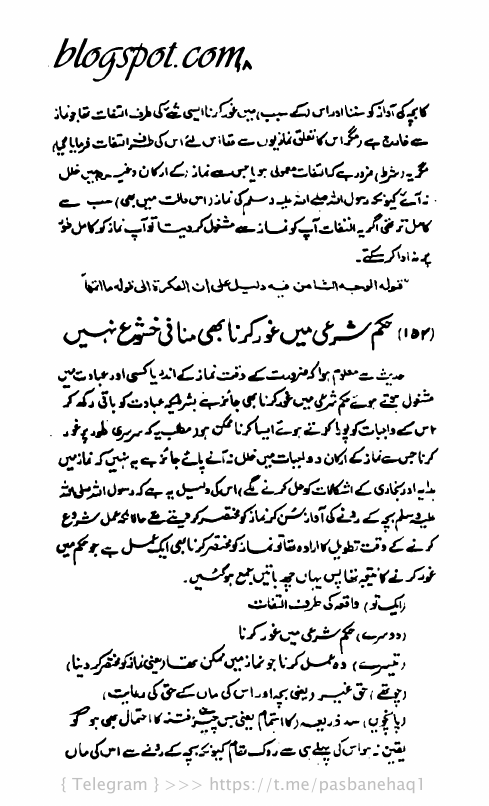 blogspot.com
۱۸
کا بچہ کی آواز کو سننا اور اس (کے سبب) میں غور کرنا ایسی شے کی طرف التفات تھا جو نماز
سے خارج ہے (مگر اس کا تعلق نمازیوں سے تھا اس لئے اس کی طرف التفات فرمایا گیا)
مگر یہ (شرط) ضرور ہے کہ التفات معمولی ہو یا جس سے نماز (کے ارکان وغیرہ) میں خلل
نہ آئے کیونکہ رسول اللہ صلے اللہ علیہ وسلم کی نماز (اس حالت میں بھی) سب سے
کامل تر تھی اگر یہ التفات آپ کو نماز سے مشغول کر دیتا تو آپ نماز کو کامل طور
پر نہ ادا کر سکتے۔
قوله الوجه الثامن فيه دليل على ان الفكرة الى قوله
(۱۵۲) حکم شرعی میں غور کرنا بھی منافی خشوع نہیں
حدیث سے معلوم ہوا کہ ضرورت کے وقت نماز کے اندر یا کسی اور عبادت میں
مشغول ہوتے ہوئے حکم شرعی میں غور کرنا بھی جائز ہے بشرطیکہ عبادت کو باقی رکھ کر
اس کے واجبات کو پورا کرتے ہوئے ایسا کرنا ممکن ہو (مطلب یہ کہ سرسری طور پر غور
کرنا جس سے نماز کے ارکان و واجبات میں خلل نہ آنے پائے جائز ہے یہ نہیں کہ نماز میں
ہدایہ اور بخاری کے اشکالات کو حل کرنے لگے) اس کی دلیل یہ ہے کہ رسول اللہ صلی اللہ
علیہ وسلم بچہ کے رونے کی آواز سن کر نماز کو مختصر کر دیتے تھے حالانکہ عمل شروع
کرنے کے وقت تطویل کا ارادہ تھا تو نماز کو مختصر کرنا بھی ایک عمل ہے جو حکم میں
غور کرنے کا نتیجہ تھا پس یہاں چند باتیں جمع ہو گئیں۔
(ایک تو) واقعہ کی طرف التفات
(دوسرے) حکم شرعی میں غور کرنا
(تیسرے) وہ عمل کرنا جو نماز میں ممکن تھا (یعنی نماز کو مختصر کر دینا)
(چوتھے) حق غیر (یعنی بچہ اور اس کی ماں کے حق کی رعایت)
(پانچویں) سد ذریعہ (کا اہتمام یعنی جس چیز سے فتنہ کا احتمال بھی ہو گو
یقین نہ ہو اس کی پہلے ہی سے روک تھام کیونکہ بچہ کے رونے سے اس کی ماں
{ Telegram } >>> https://t.me/pasbanehaq1